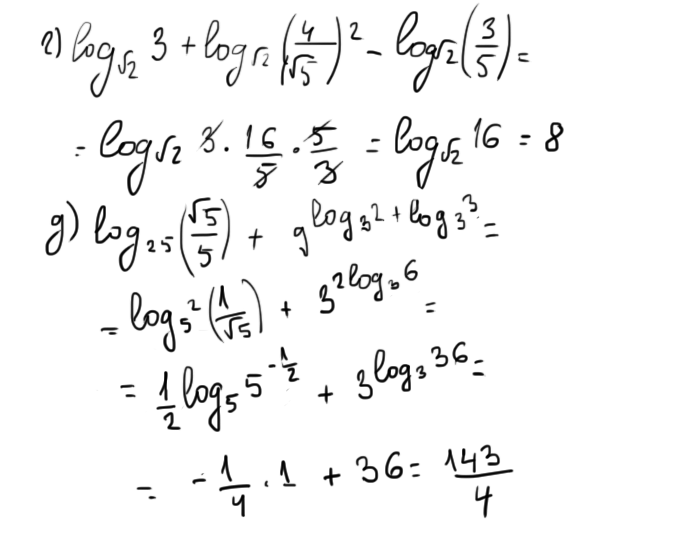 г) log_{√2} 3 + log_{√2} (4/√5)^2 - log_{√2} (3/5) =
= log_{√2} 3 · 16/5 · 5/3 = log_{√2} 16 = 8
д) log_{25} (√5/5) + 9^{log_3 2 + log_3 3} =
= log_{5^2} (1/√5) + 3^{2log_3 6} =
= 1/2 log_5 5^{-1/2} + 3^{log_3 36} =
= -1/4 · 1 + 36 = 143/4